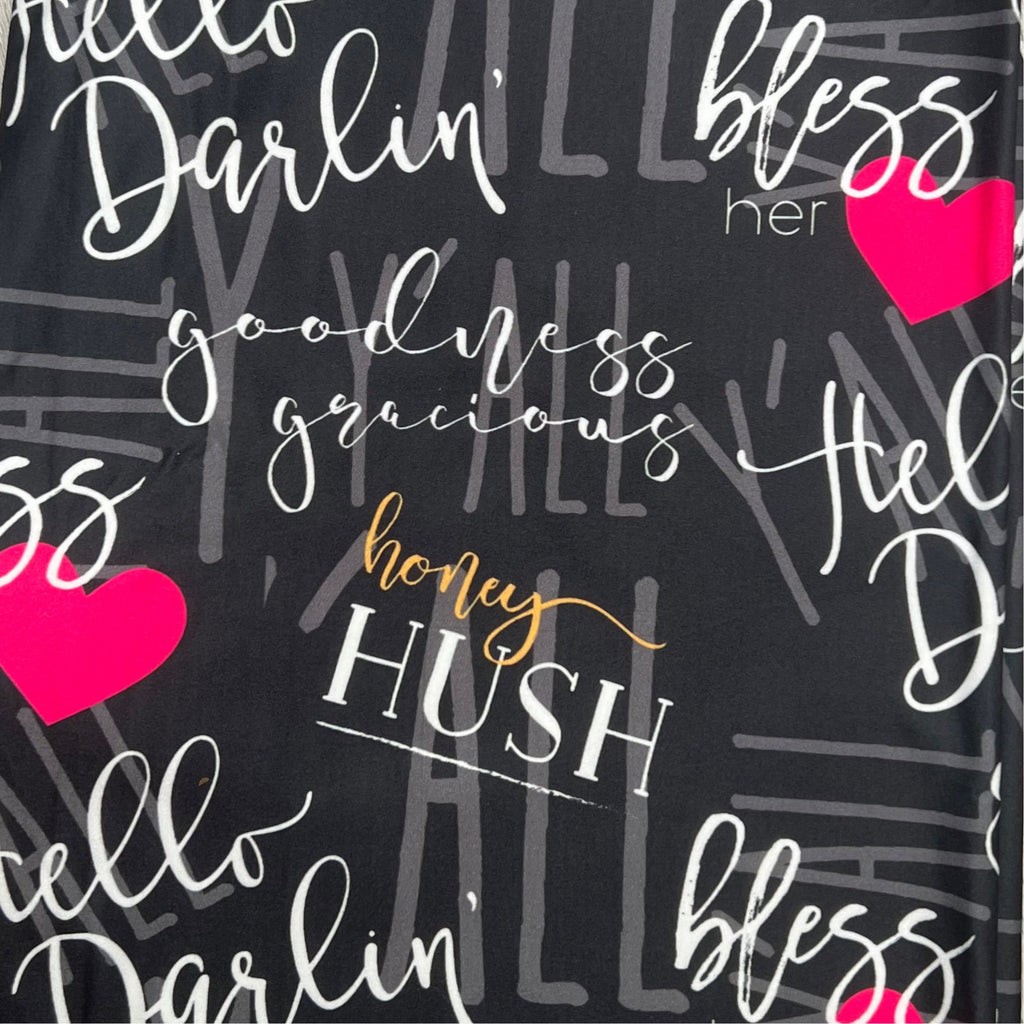 Hello
Darlin'
Y'ALL
bless
her
goodness
gracious
Y'ALL
Y'ALL
Hel
D
ss
honey
HUSH
Y'ALL
Hello
Darlin'
bless